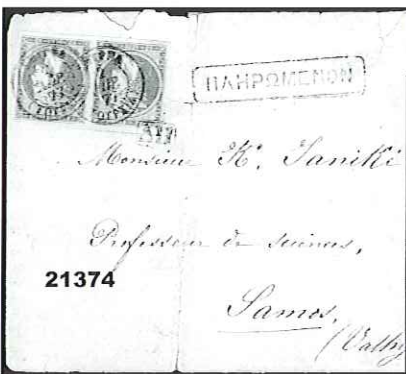 ΠΛΗΡΩΜΕΝΟΝ
Monsieur K. Saniki
Professeur de sciences,
21374
Samos,
(Vathy